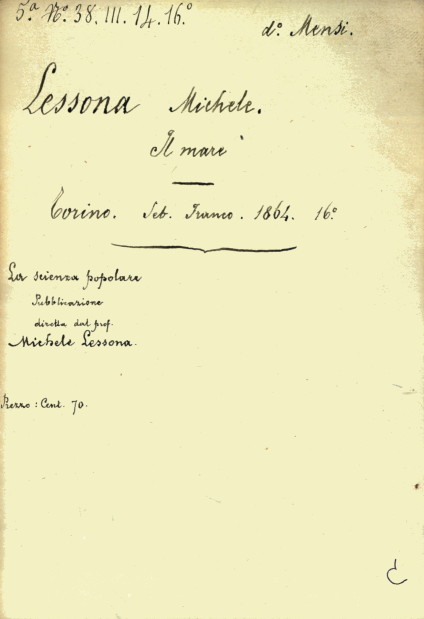 5.ª N.º 38. III. 14. 16.º
d.º Mensi.
Lessona Michele.
Il mare
Torino. Seb. Franco. 1864. 16.º
La scienza popolare
Pubblicazione
diretta dal prof.
Michele Lessona.
Prezzo: Cent. 70.